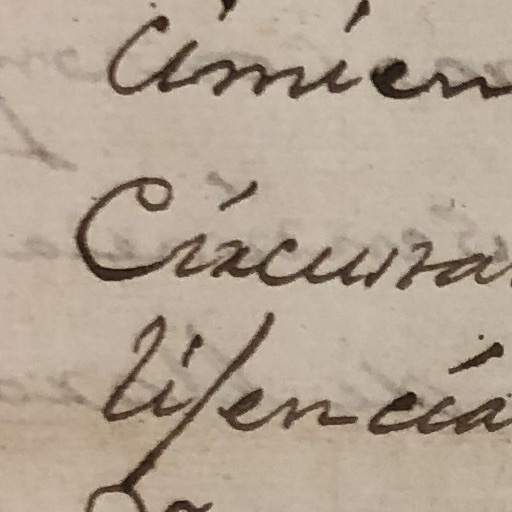 cimien
Circunra
lisencia